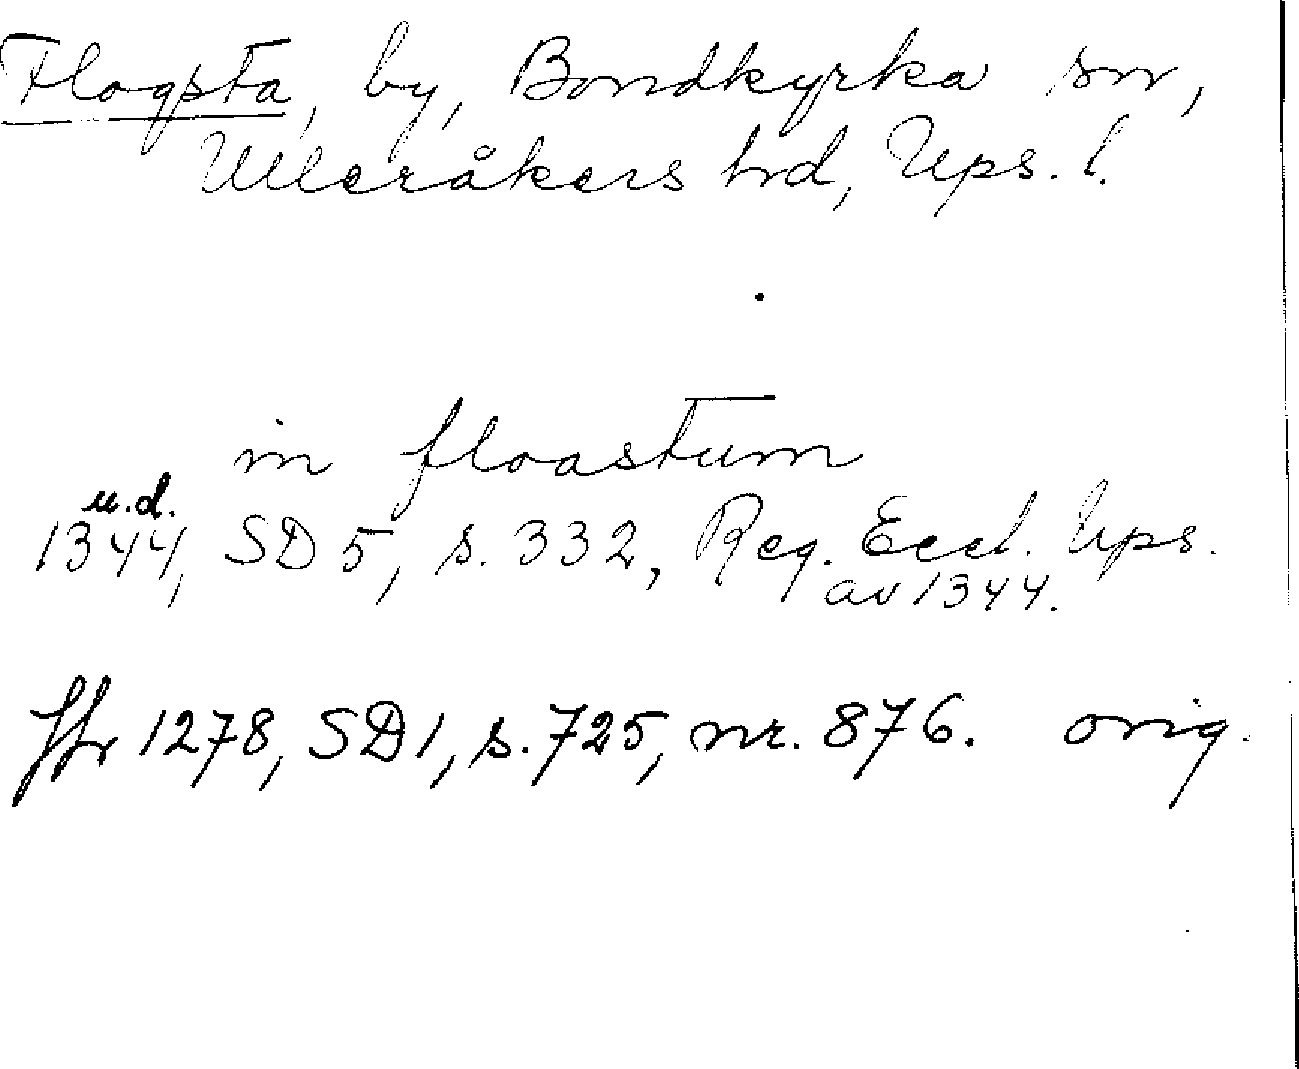 Flogsta, by, Bondkyrka sn,
Ulleråkers hrd, Ups. l.
in floastum
u.d.
1344, SD 5, s. 332, Reg. Eccl. Ups.
av 1344.
Jfr 1278, SD 1, s. 725, nr. 876. orig.